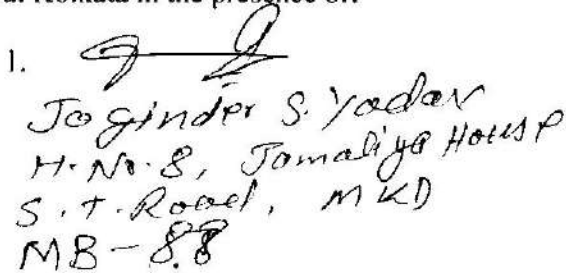 in the presence of:
1.
Joginder S. Yadav
H. No. 8, Jamaliya House
S. T. Road, MKD
MB - 88